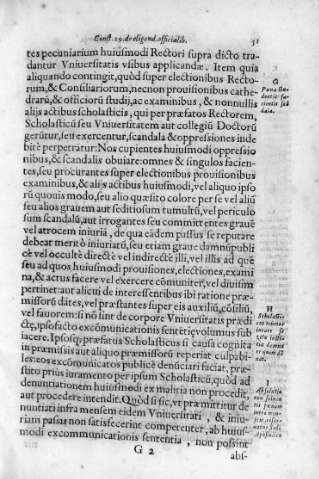 Const. 29. de eligend. officialib. 51
tes pecuniarium huiusmodi Rectori supra dicto tra-
dantur Vniuersitatis vsibus applicandæ. Item quia
aliquando contingit, quòd super electionibus Recto-
rum, & Consiliariorum, necnon prouisionibus cathe-
drarũ, & officiorũ studij, ac examinibus, & nonnullis
alijs actibus scholasticis, qui per præfatos Rectorem,
Scholasticũ seu Vniuersitatem aut collegiũ Doctorũ
gerũtur, seu exercentur, scandala & oppressiones inde
bitè perpetrãtur: Nos cupientes huiusmodi oppressio
nibus, & scandalis obuiare: omnes & singulos facien-
tes, seu procurantes super electionibus prouisionibus
examinibus, & alijs actibus huiusmodi, vel aliquo ipso
rũ quouis modo, seu alio quæsito colore per se vel aliũ
seu alios grauem aut seditiosum tumultũ, vel periculo
sum scandalũ, aut irrogantes seu committentes grauẽ
vel atrocem iniuriã, de qua eadem passus se reputare
debeat meritò iniuriatũ, seu etiam graue damnũ publi
cè vel occultè directè vel indirectè illi, vel illis ad quẽ
seu ad quos huiusmodi prouisiones, electiones, exami
na, & actus facere vel exercere cõmuniter, vel diuisim
pertinet: aut alicui de interessentibus ibi ratione præ-
missorũ dãtes, vel præstantes super eis auxiliũ, cõsiliũ,
vel fauorem: si nõ sint de corpore Vniuersitatis prædi
ctę, ipso facto excõmunicationis sententię volumus sub
iacere. Ipsosq; præfatus Scholasticus si causa cognita
in præmissis aut aliquo præmissorũ reperiat culpabi-
les: eos excõmunicatos publicè denũciari faciat, præ-
stito prius iuramento per ipsum Scholasticũ, quòd ad
denuntiationem huiusmodi ex malitia non procedit,
aut procedere intendit. Quòd si sic, vt præmittitur de
nuntiati infra mensem eidem Vniuersitati, & iniu-
riam passis non satisfecerint competenter, ab huius-
modi excommunicationis sententia, non possint
G 2 abs-
G
H
Scholasticus
I